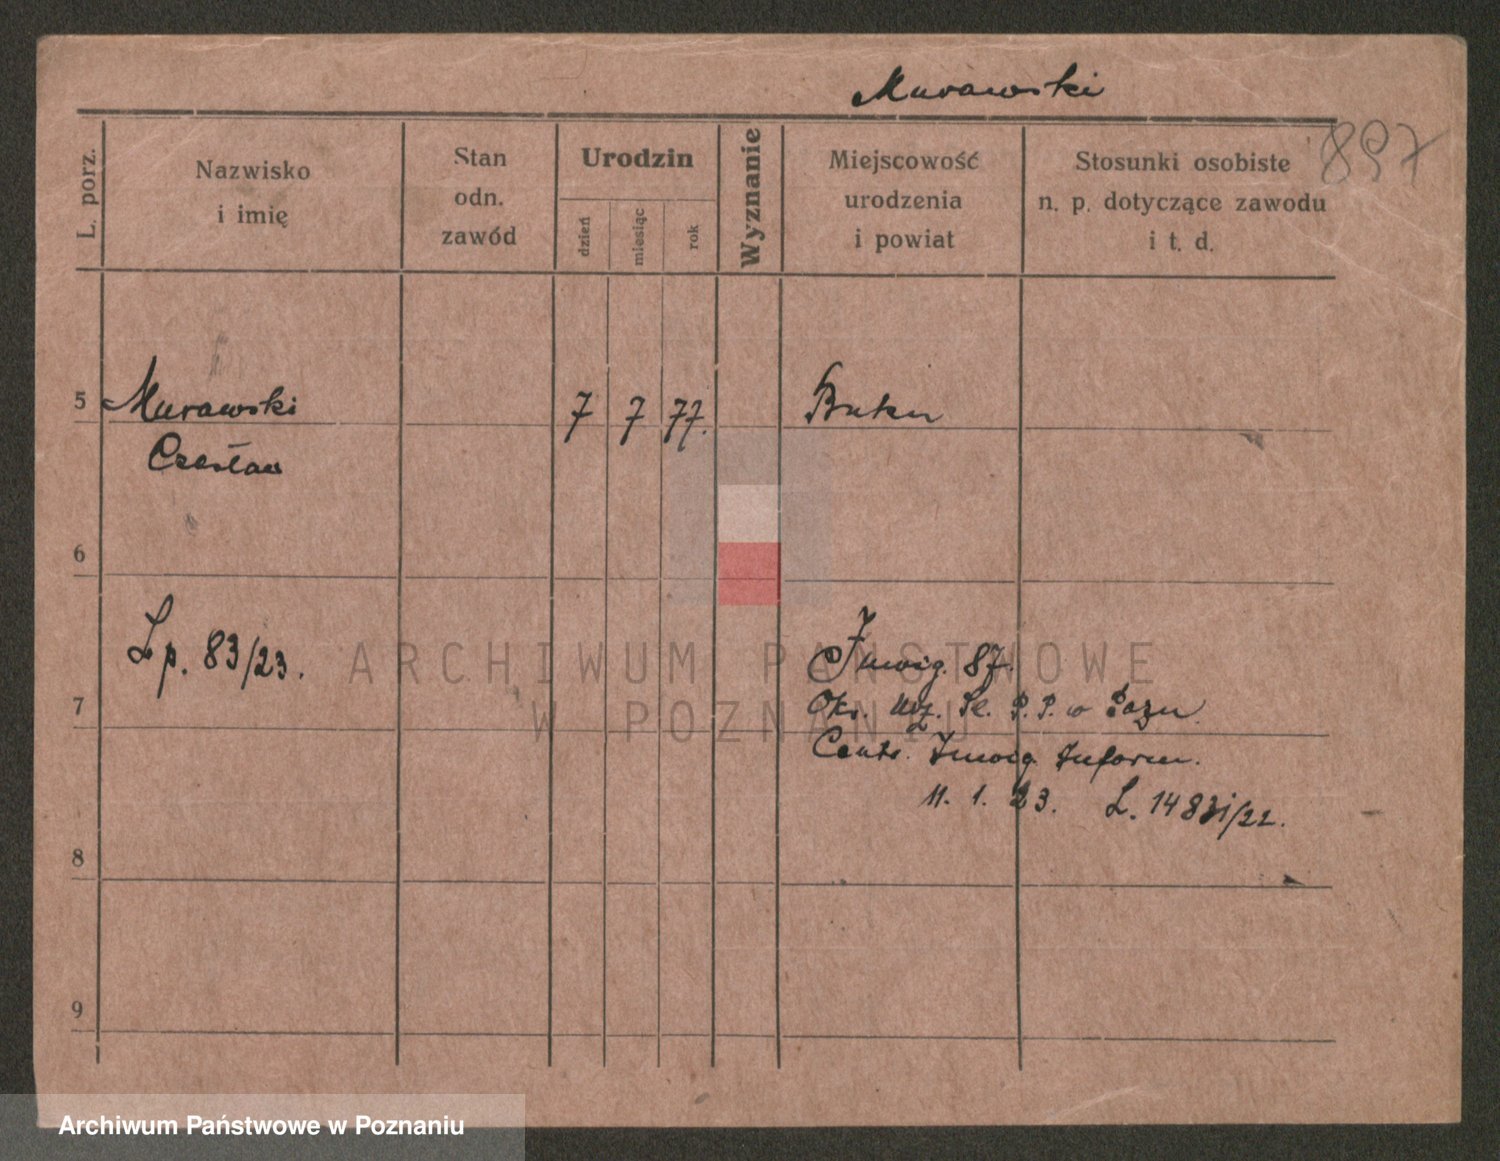 Murawski
897
L. porz.
Nazwisko
i imię
Stan
odn.
zawód
Urodzin
dzień
miesiąc
rok
Wyznanie
Miejscowość
urodzenia
i powiat
Stosunki osobiste
n. p. dotyczące zawodu
i t. d.
5 Murawski 7 7 77. Buku
Czesław
6
Lp. 83/23.
Inwig. 87.
7
Okr. Urz. Śl. P.P. w Pozn.
Centr. Inwig. Inform.
11. 1. 23. L. /22.
8
9
ARCHIWUM PAŃSTWOWE
W POZNANIU
Archiwum Państwowe w Poznaniu